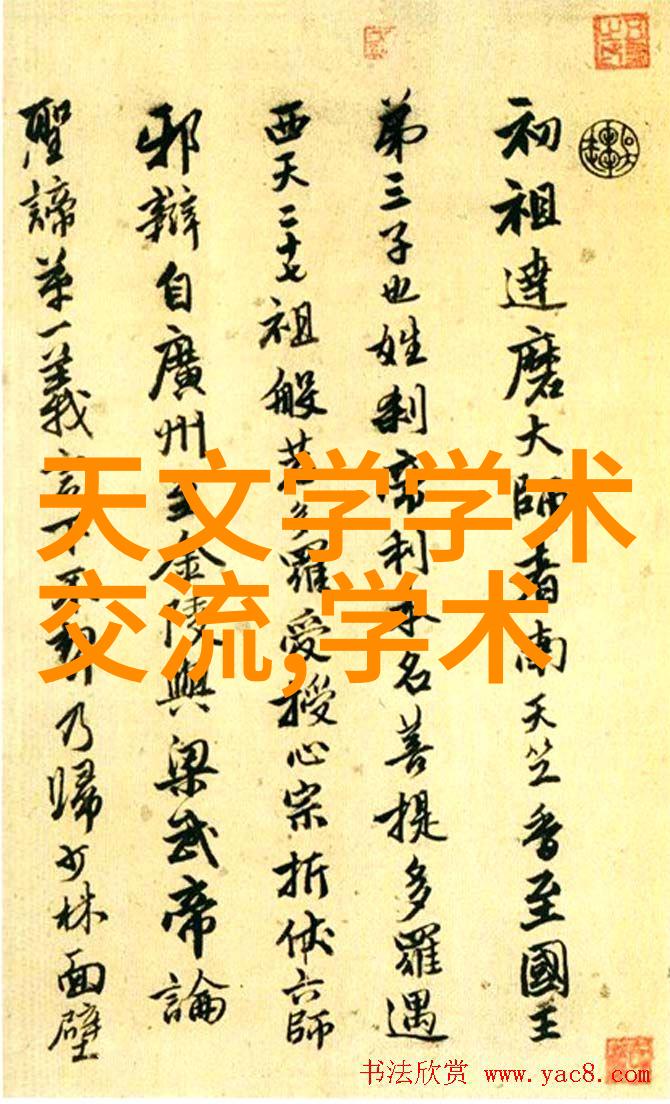 初祖達磨大師者南天竺香至國王
第三子也姓刹帝利本名菩提多羅遇
西天二十七祖般若多羅受授心宗折伏六師
邪辯自廣州至金陵與梁武帝論
聖諦第一義言下不契乃歸少林面壁
天文学学术
交流,学术
书法欣赏 www.yac8.com